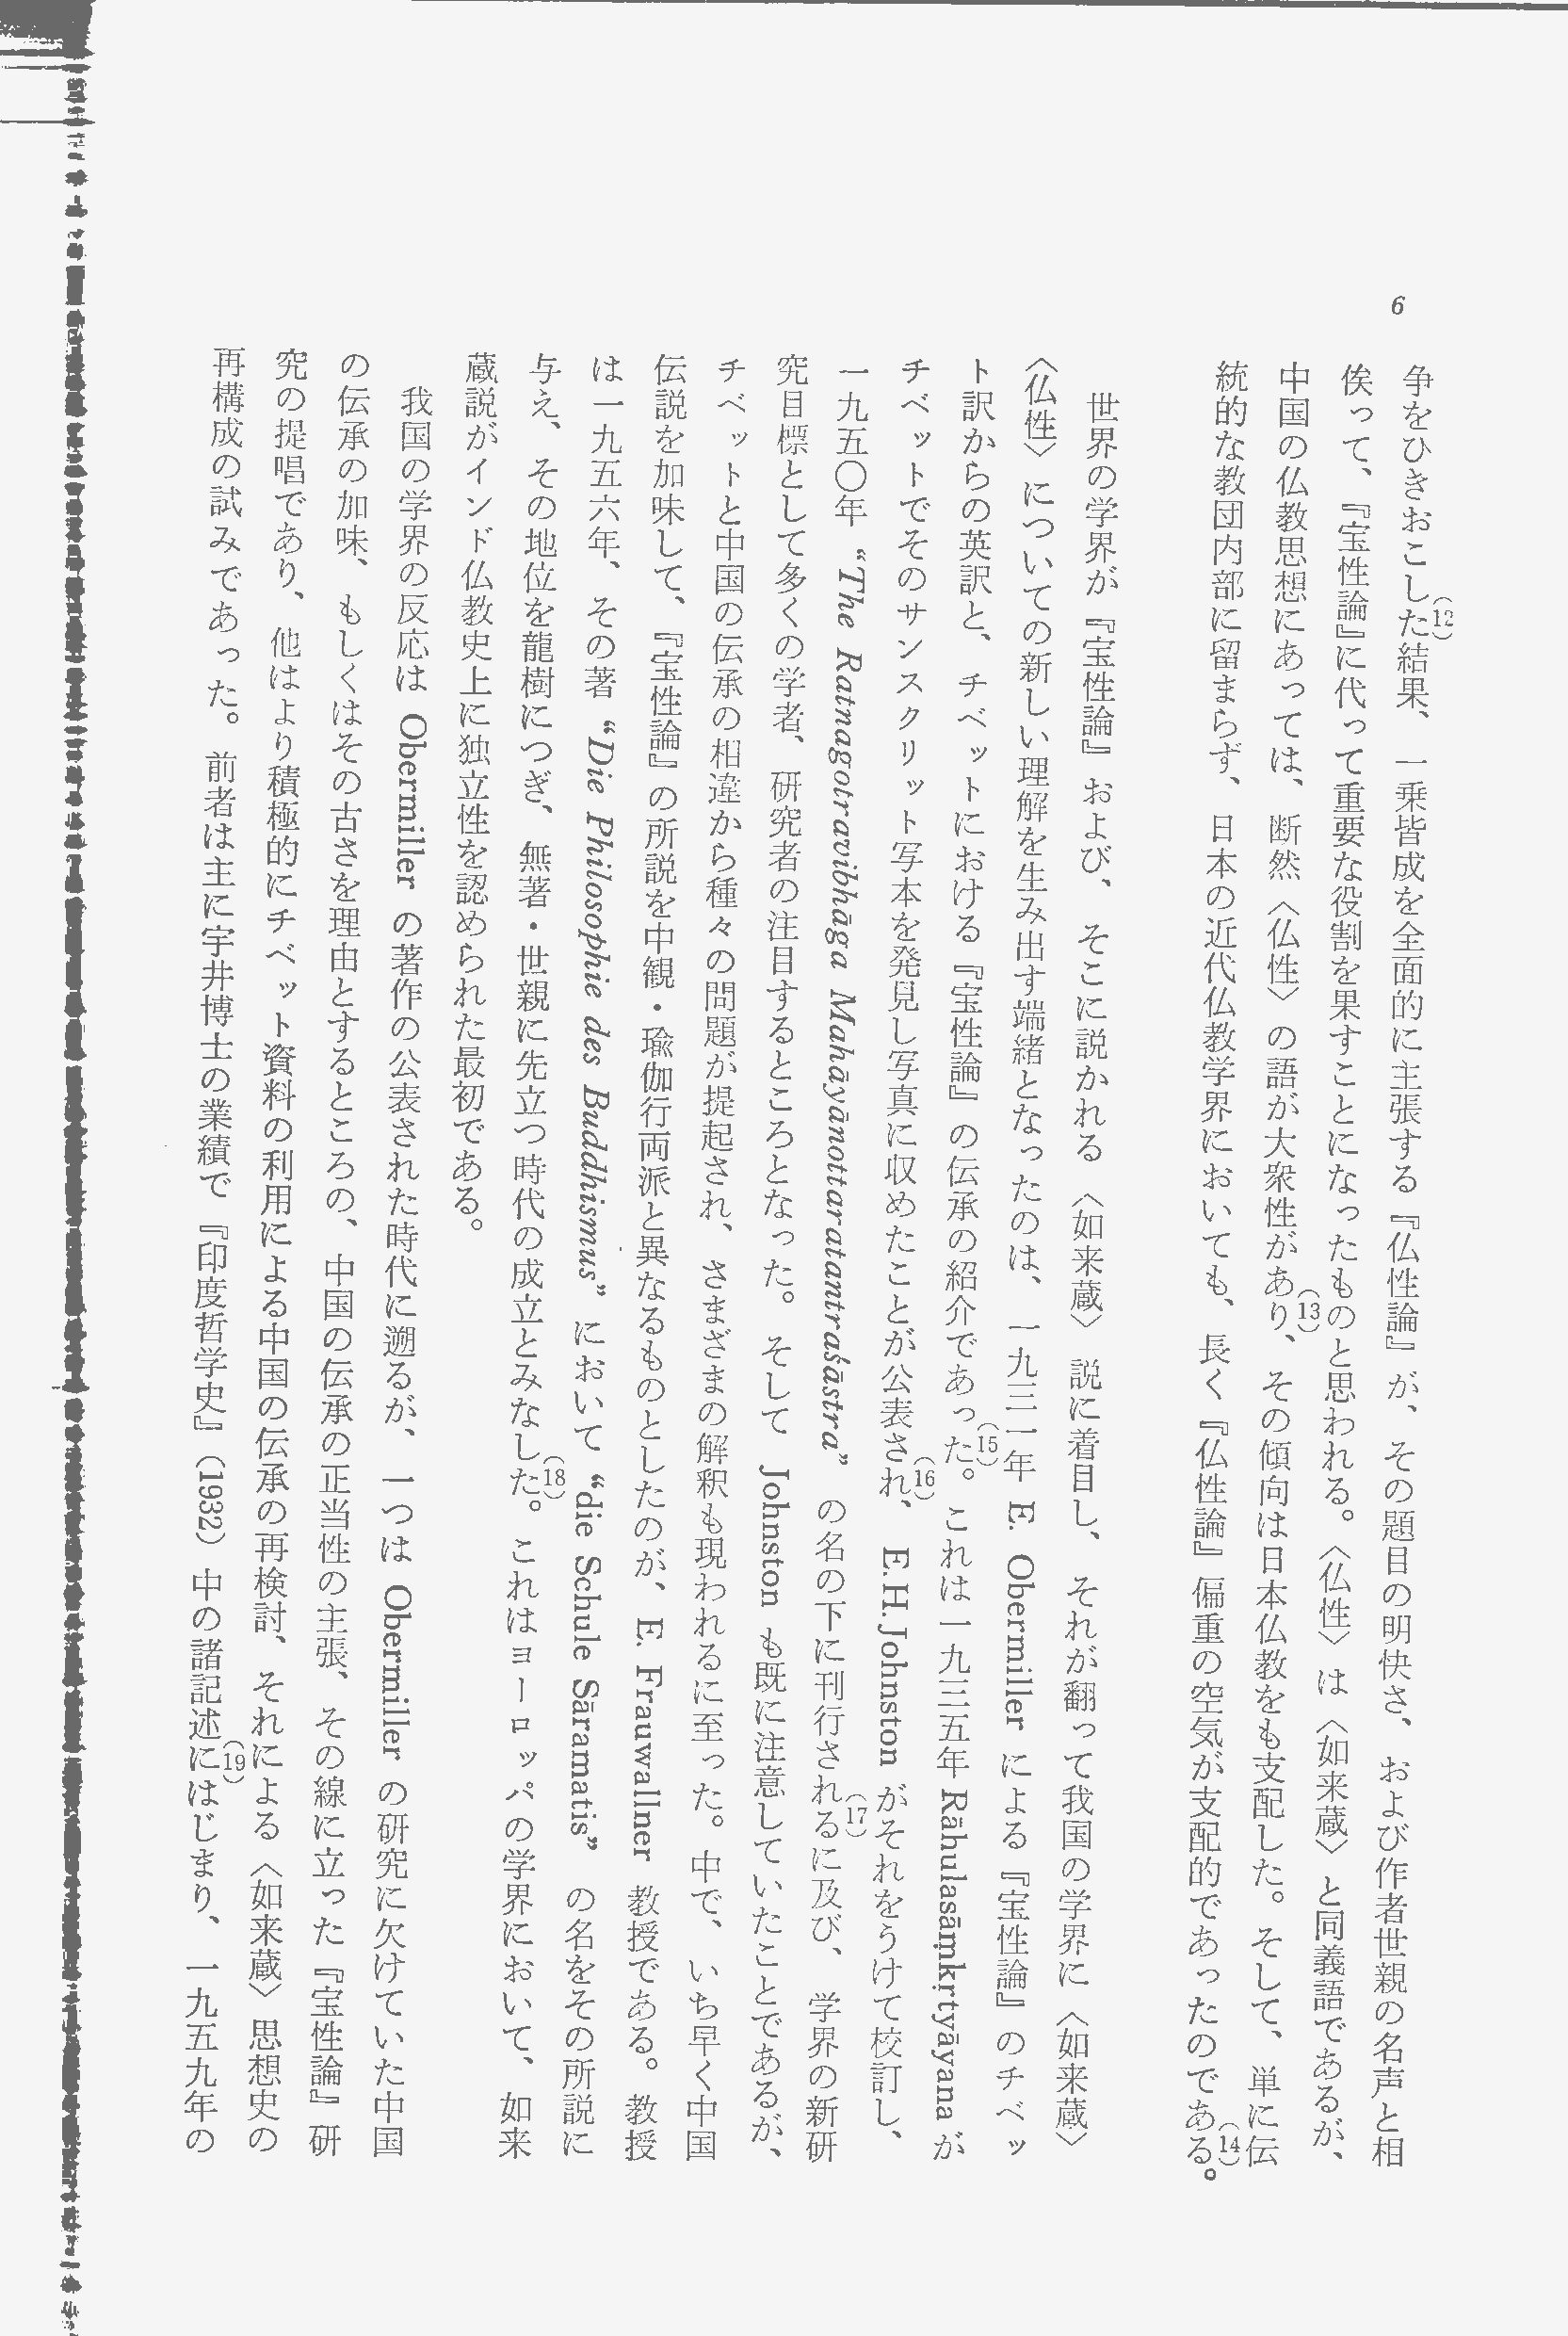 6
争をひきおこした(12)結果、一乗皆成を全面的に主張する『仏性論』が、その題目の明快さ、および作者世親の名声と相
俟って、『宝性論』に代って重要な役割を果すことになったものと思われる。〈仏性〉は〈如来蔵〉と同義語であるが、
中国の仏教思想にあっては、断然〈仏性〉の語が大衆性があり(13)、その傾向は日本仏教をも支配した。そして、単に伝
統的な教団内部に留まらず、日本の近代仏教学界においても、長く『仏性論』偏重の空気が支配的であったのである(14)。
世界の学界が『宝性論』および、そこに説かれる〈如来蔵〉説に着目し、それが翻って我国の学界に〈如来蔵〉
〈仏性〉についての新しい理解を生み出す端緒となったのは、一九三一年 E. Obermiller による『宝性論』のチベッ
ト訳からの英訳と、チベットにおける『宝性論』の伝承の紹介であった(15)。これは一九三五年 Rāhulasāṃkṛtyāyana が
チベットでそのサンスクリット写本を発見し写真に収めたことが公表され(16)、E.H. Johnston がそれをうけて校訂し、
一九五〇年 “The Ratnagotravibhāga Mahāyānottaratantraśāstra” の名の下に刊行される(17)に及び、学界の新研
究目標として多くの学者、研究者の注目するところとなった。そして Johnston も既に注意していたことであるが、
チベットと中国の伝承の相違から種々の問題が提起され、さまざまの解釈も現われるに至った。中で、いち早く中国
伝説を加味して、『宝性論』の所説を中観・瑜伽行両派と異なるものとしたのが、E. Frauwallner 教授である。教授
は一九五六年、その著 “Die Philosophie des Buddhismus” において “die Schule Sāramatis” の名をその所説に
与え、その地位を龍樹につぎ、無著・世親に先立つ時代の成立とみなした(18)。これはヨーロッパの学界において、如来
蔵説がインド仏教史上に独立性を認められた最初である。
我国の学界の反応は Obermiller の著作の公表された時代に遡るが、一つは Obermiller の研究に欠けていた中国
の伝承の加味、もしくはその古さを理由とするところの、中国の伝承の正当性の主張、その線に立った『宝性論』研
究の提唱であり、他はより積極的にチベット資料の利用による中国の伝承の再検討、それによる〈如来蔵〉思想史の
再構成の試みであった。前者は主に宇井博士の業績で『印度哲学史』(1932)中の諸記述に(19)はじまり、一九五九年の